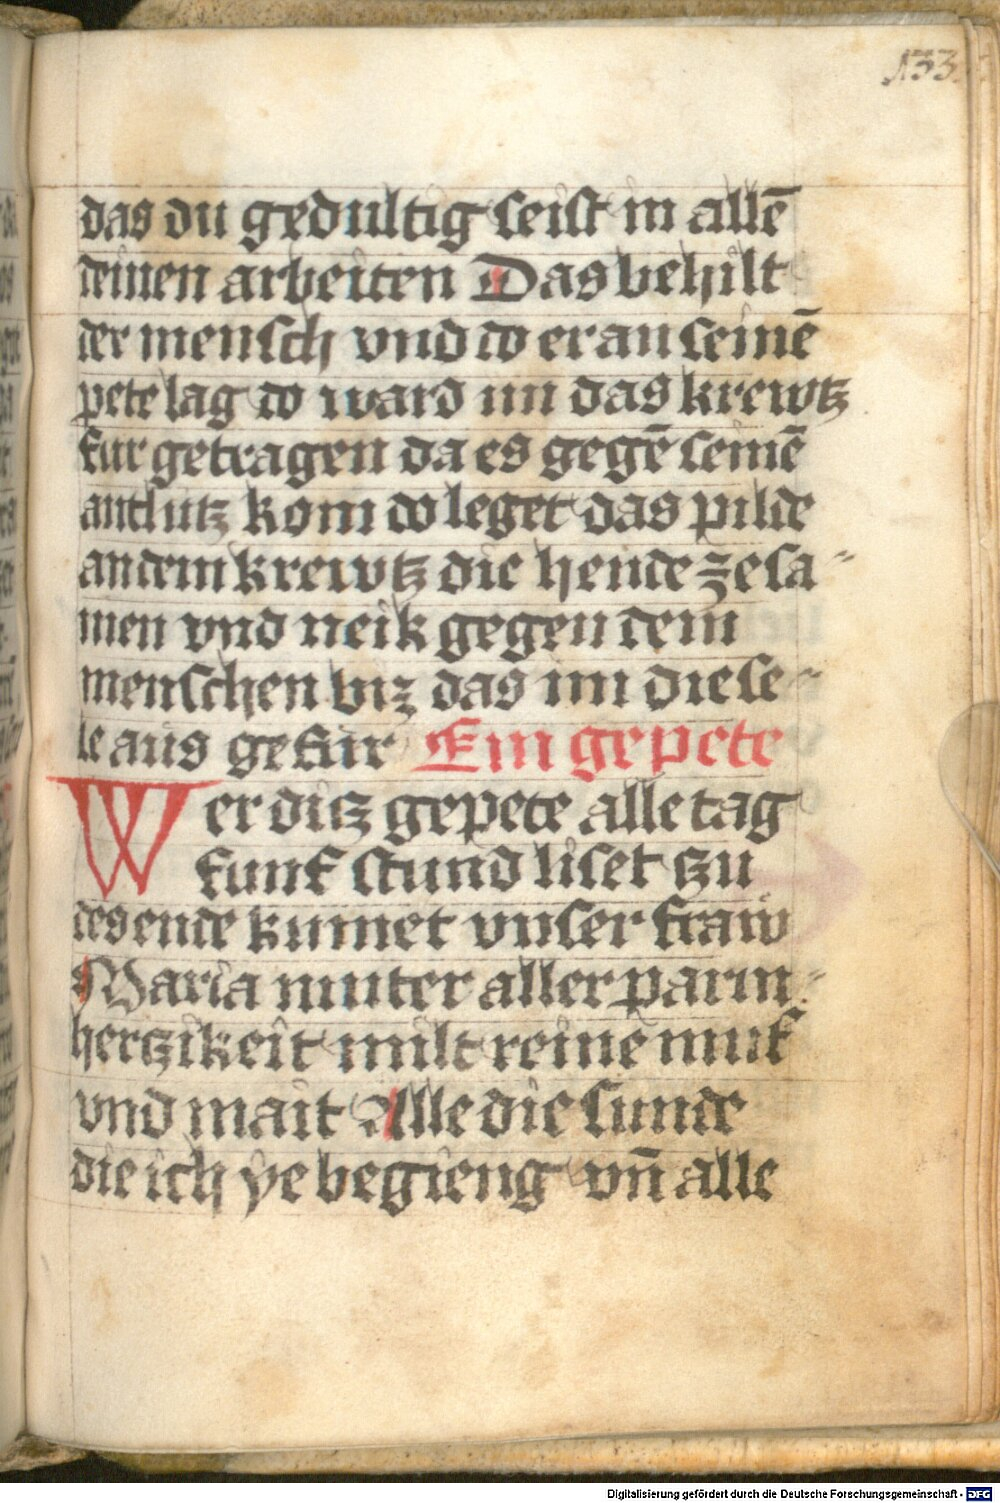 133
das du gedultig seist in allē
deinen arbeiten Das behilt
der mensch vnd do er an seinē
pete lag do ward im das krewtz
fur getragen da es gegē seinē
antlutz kom do leget das pilde
an dem krewtz die hende zesa-
men vnd neik gegen dem
menschen biz das im die se-
le aus gefur Ein gepete
Wer ditz gepete alle tag
funf stund liset tzu
des ende kumet vnser fraw
Maria muter aller parm-
hertzikeit milt reine mut̄
vnd mait Alle die sunde
die ich ye begieng vn̄ alle
Digitalisierung gefördert durch die Deutsche Forschungsgemeinschaft - DFG